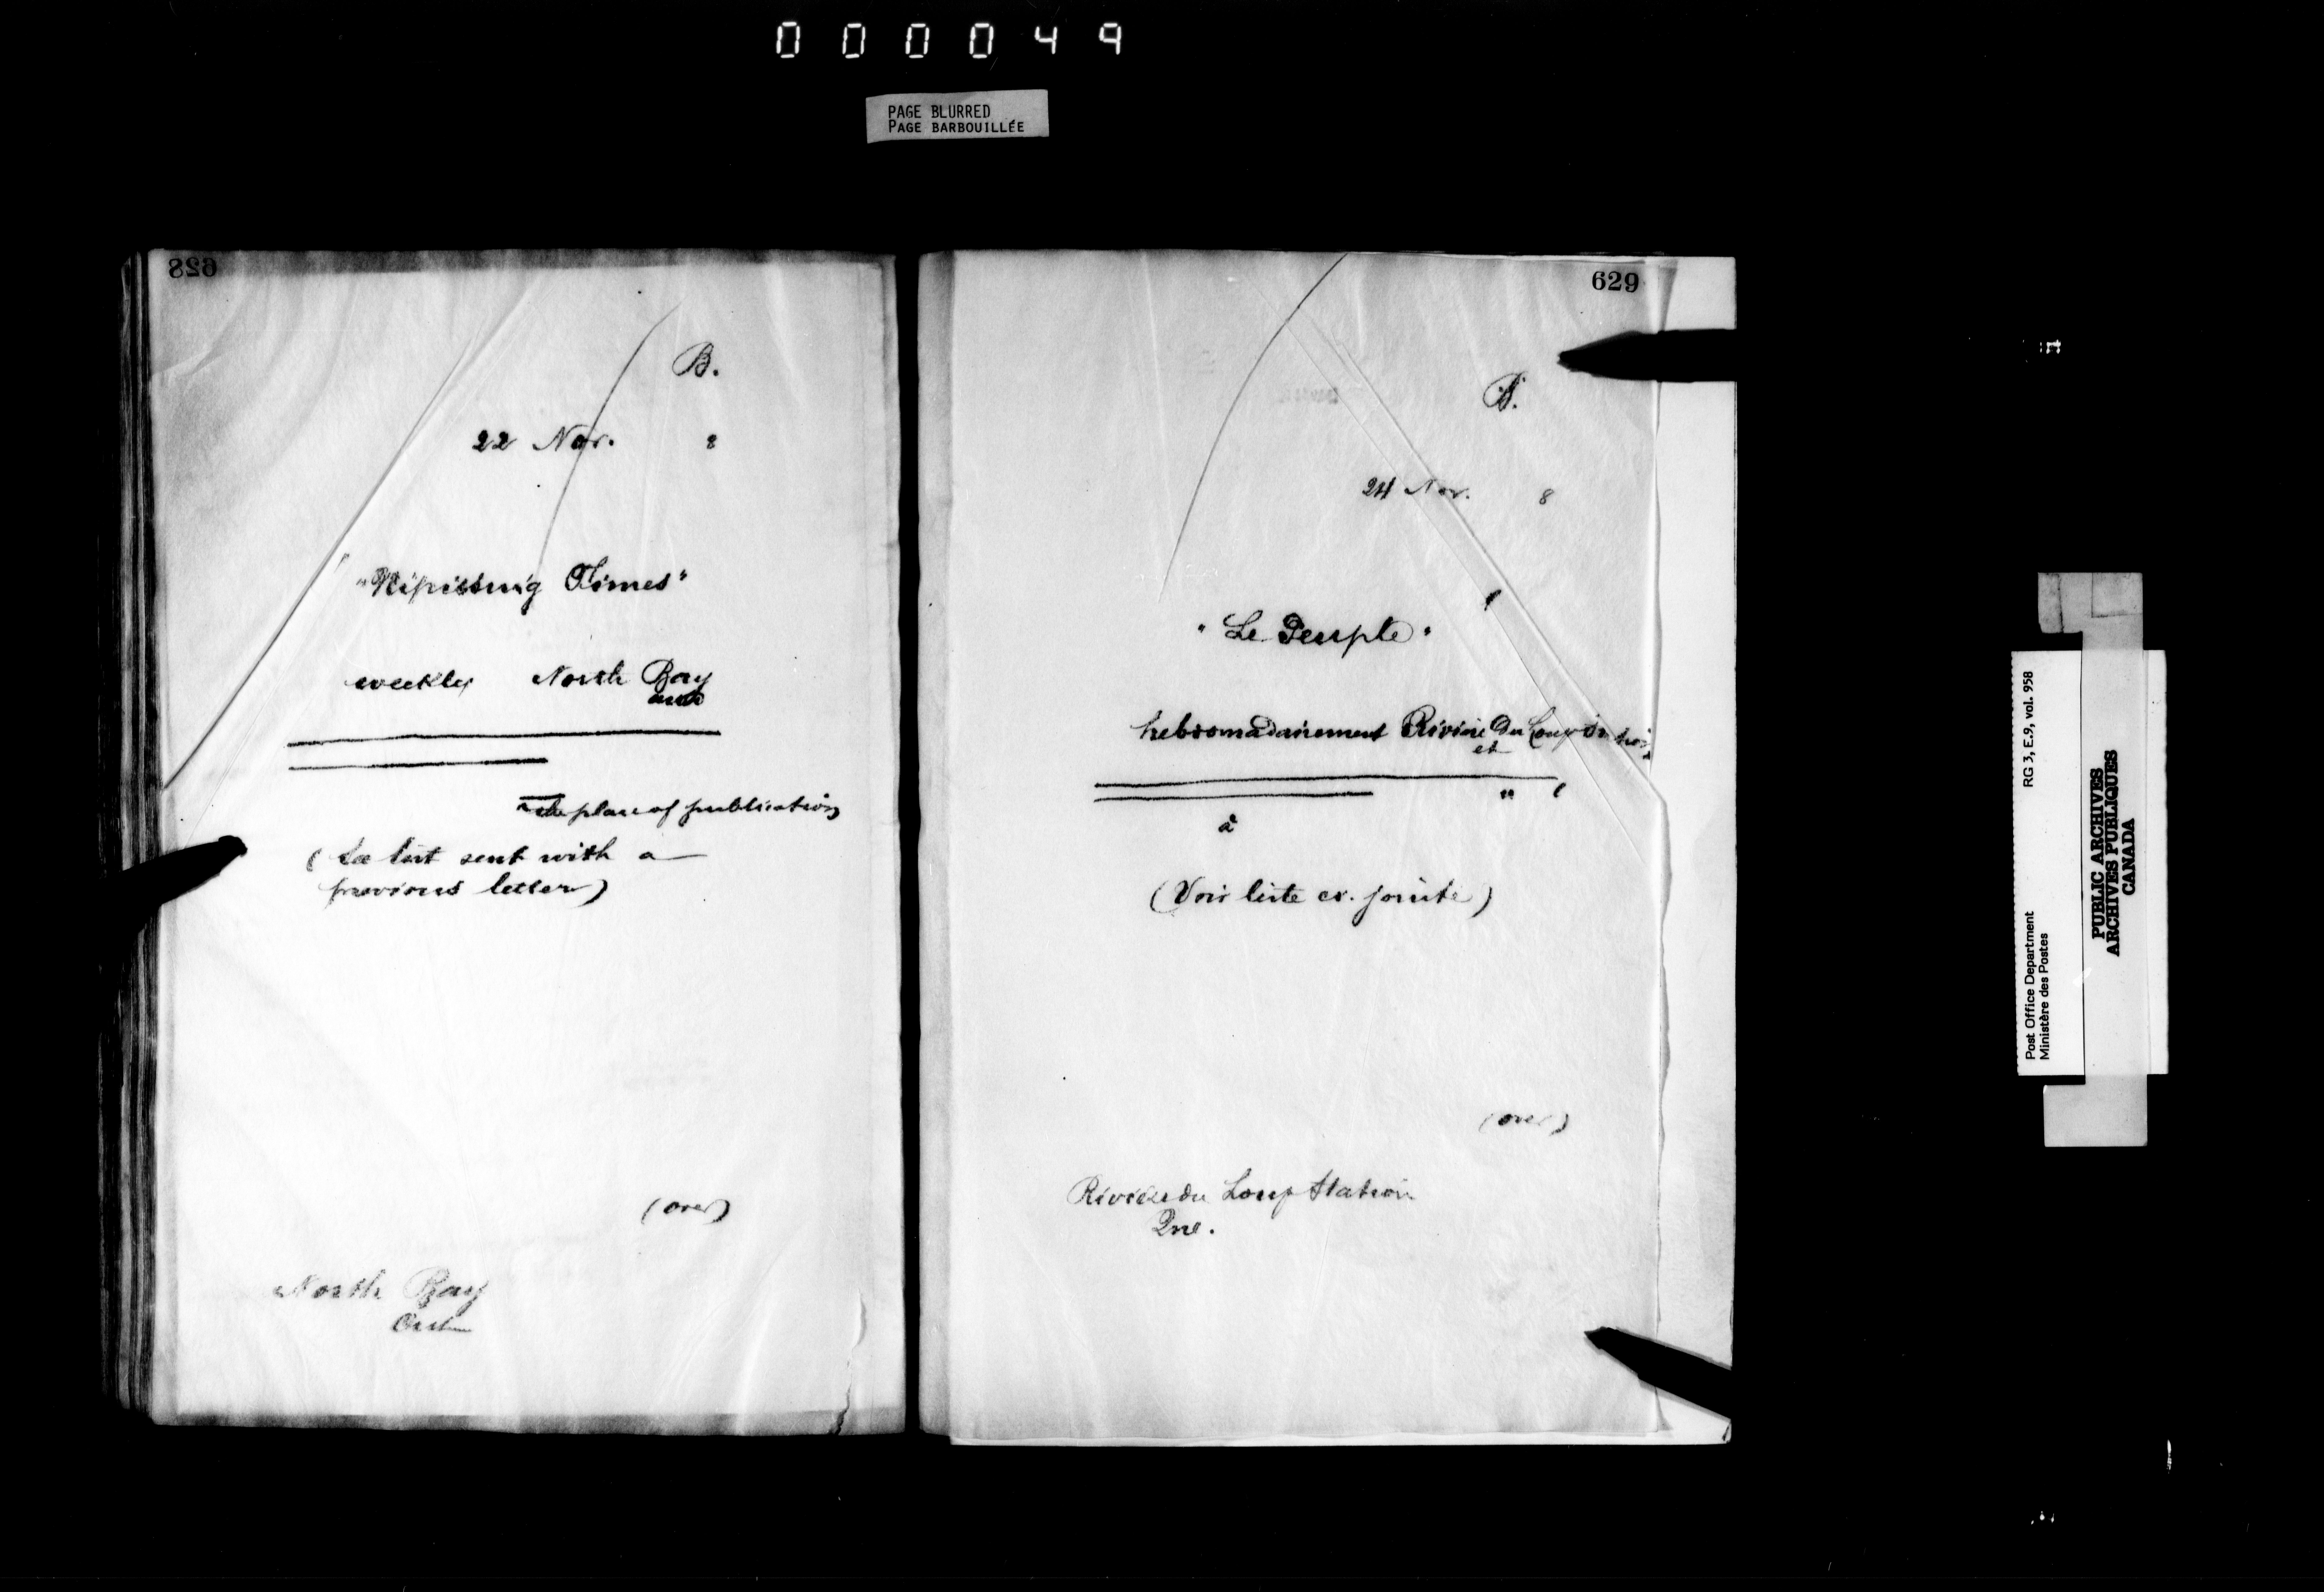 000049
PAGE BLURRED
PAGE BARBOUILLÉE
628
B.
22 Nov. 8
"Nipissing Times"
weekly North Bay
and
the place of publication
(See list sent with a
previous letter)
(over)
North Bay
Ont
629
B.
24 Nov. 8
"Le Peuple"
hebdomadairement Rivière du Loup
et
"
à
(Voir liste ci-jointe)
(over)
Rivière du Loup Station
Que.
Post Office Department
Ministère des Postes
RG 3, E.9, vol. 958
PUBLIC ARCHIVES
ARCHIVES PUBLIQUES
CANADA